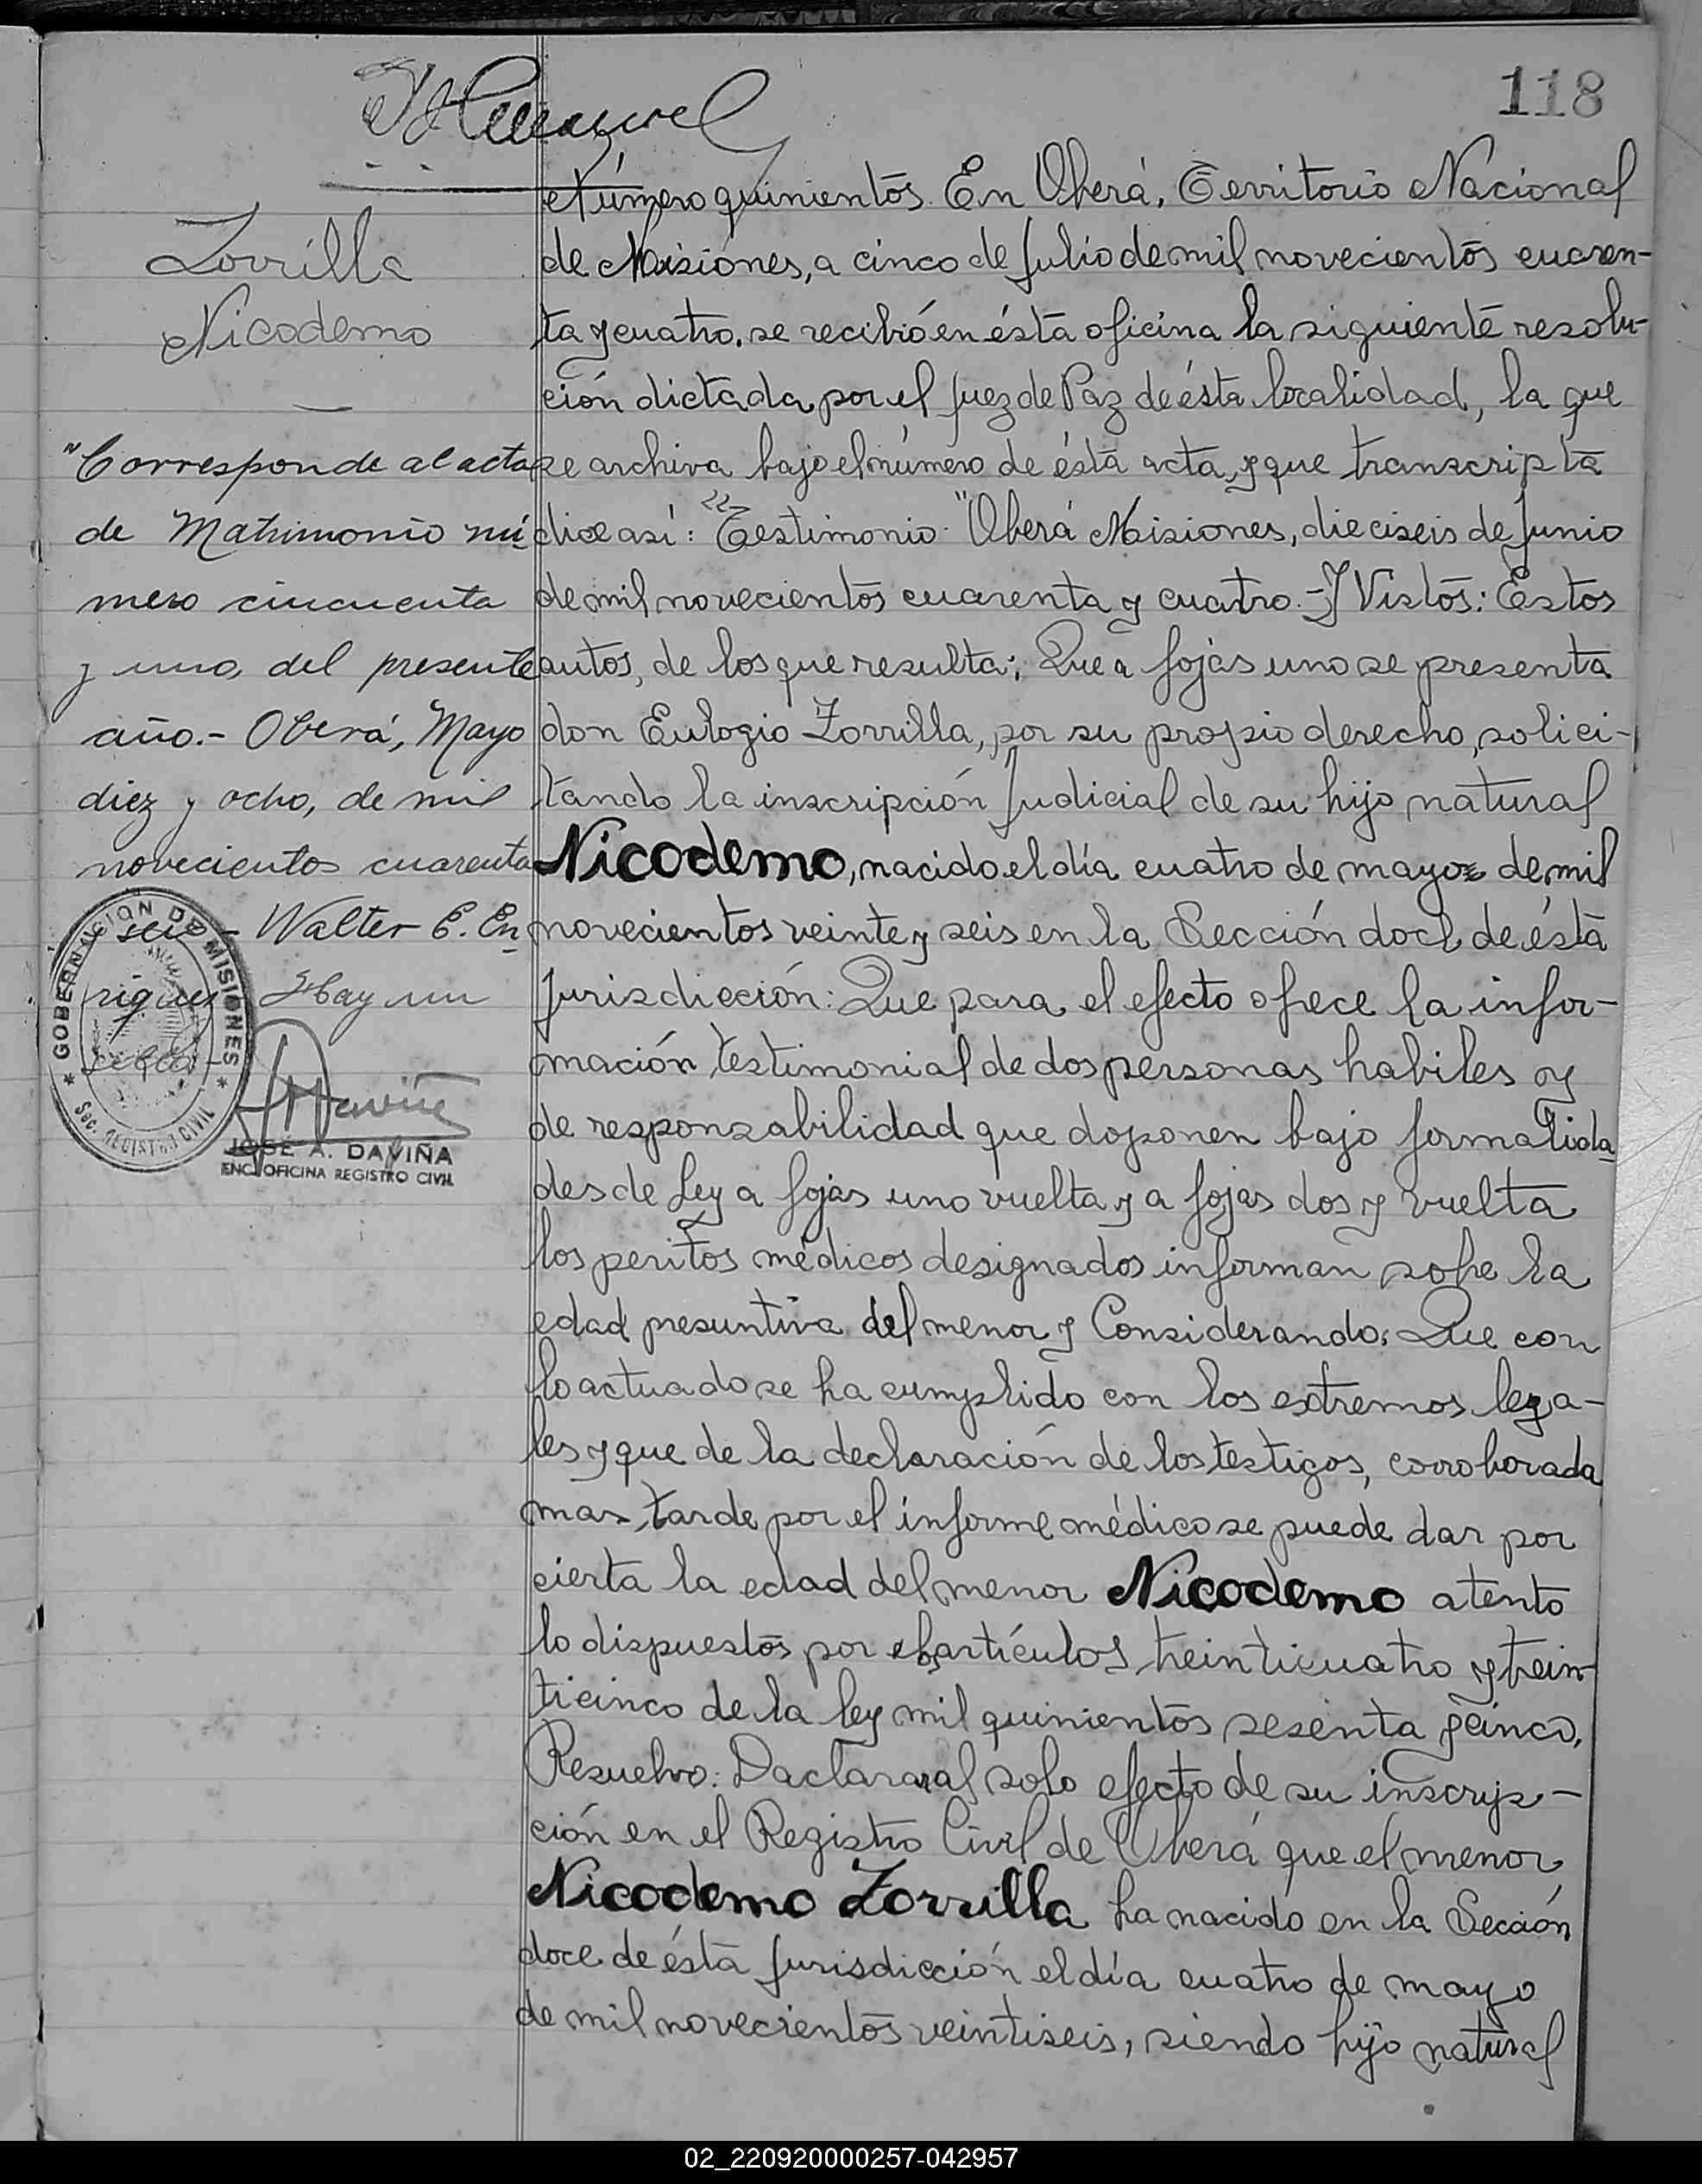 118
Zorrilla
Nicodemo
"Corresponde al acta
de Matrimonio nú
mero cincuenta
y uno, del presente
año.- Oberá, Mayo
diez y ocho, de mil
novecientos cuarenta
y seis - Walter E. En
riquez Hay un
sello -
GOBERNACION DE MISIONES
Sec. REGISTRO CIVIL
JOSÉ A. DAVIÑA
ENC. OFICINA REGISTRO CIVIL
Número quinientos. En Oberá, Territorio Nacional
de Misiones, a cinco de Julio de mil novecientos cuaren-
ta y cuatro. se recibió en ésta oficina la siguiente resolu-
ción dictada por el Juez de Paz de ésta localidad, la que
se archiva bajo el número de ésta acta, y que transcripta
dice así: "Testimonio "Oberá Misiones, dieciseis de Junio
de mil novecientos cuarenta y cuatro.- Y Vistos: Estos
autos, de los que resulta: Que a fojas uno se presenta
don Eulogio Zorrilla, por su propio derecho, solici-
tando la inscripción Judicial de su hijo natural
Nicodemo, nacido el día cuatro de mayo de mil
novecientos veinte y seis en la Sección doce de ésta
Jurisdicción: Que para el efecto ofrece la infor-
mación testimonial de dos personas habiles y
de responsabilidad que doponen bajo formalida
des de Ley a fojas uno vuelta y a fojas dos y vuelta
los peritos médicos designados informan sobre la
edad presuntiva del menor y Considerando: Que con
lo actuado se ha cumplido con los extremos lega-
les y que de la declaración de los testigos, corroborada
mas tarde por el informe médico se puede dar por
cierta la edad del menor Nicodemo atento
lo dispuestos por los artículos treinticuatro y trein-
ticinco de la ley mil quinientos sesenta y cinco,
Resuelvo: Daclarar al solo efecto de su inscrip-
ción en el Registro Civil de Oberá que el menor
Nicodemo Zorrilla ha nacido en la Sección
doce de ésta Jurisdicción el día cuatro de mayo
de mil novecientos veintiseis, siendo hijo natural
02_220920000257-042957